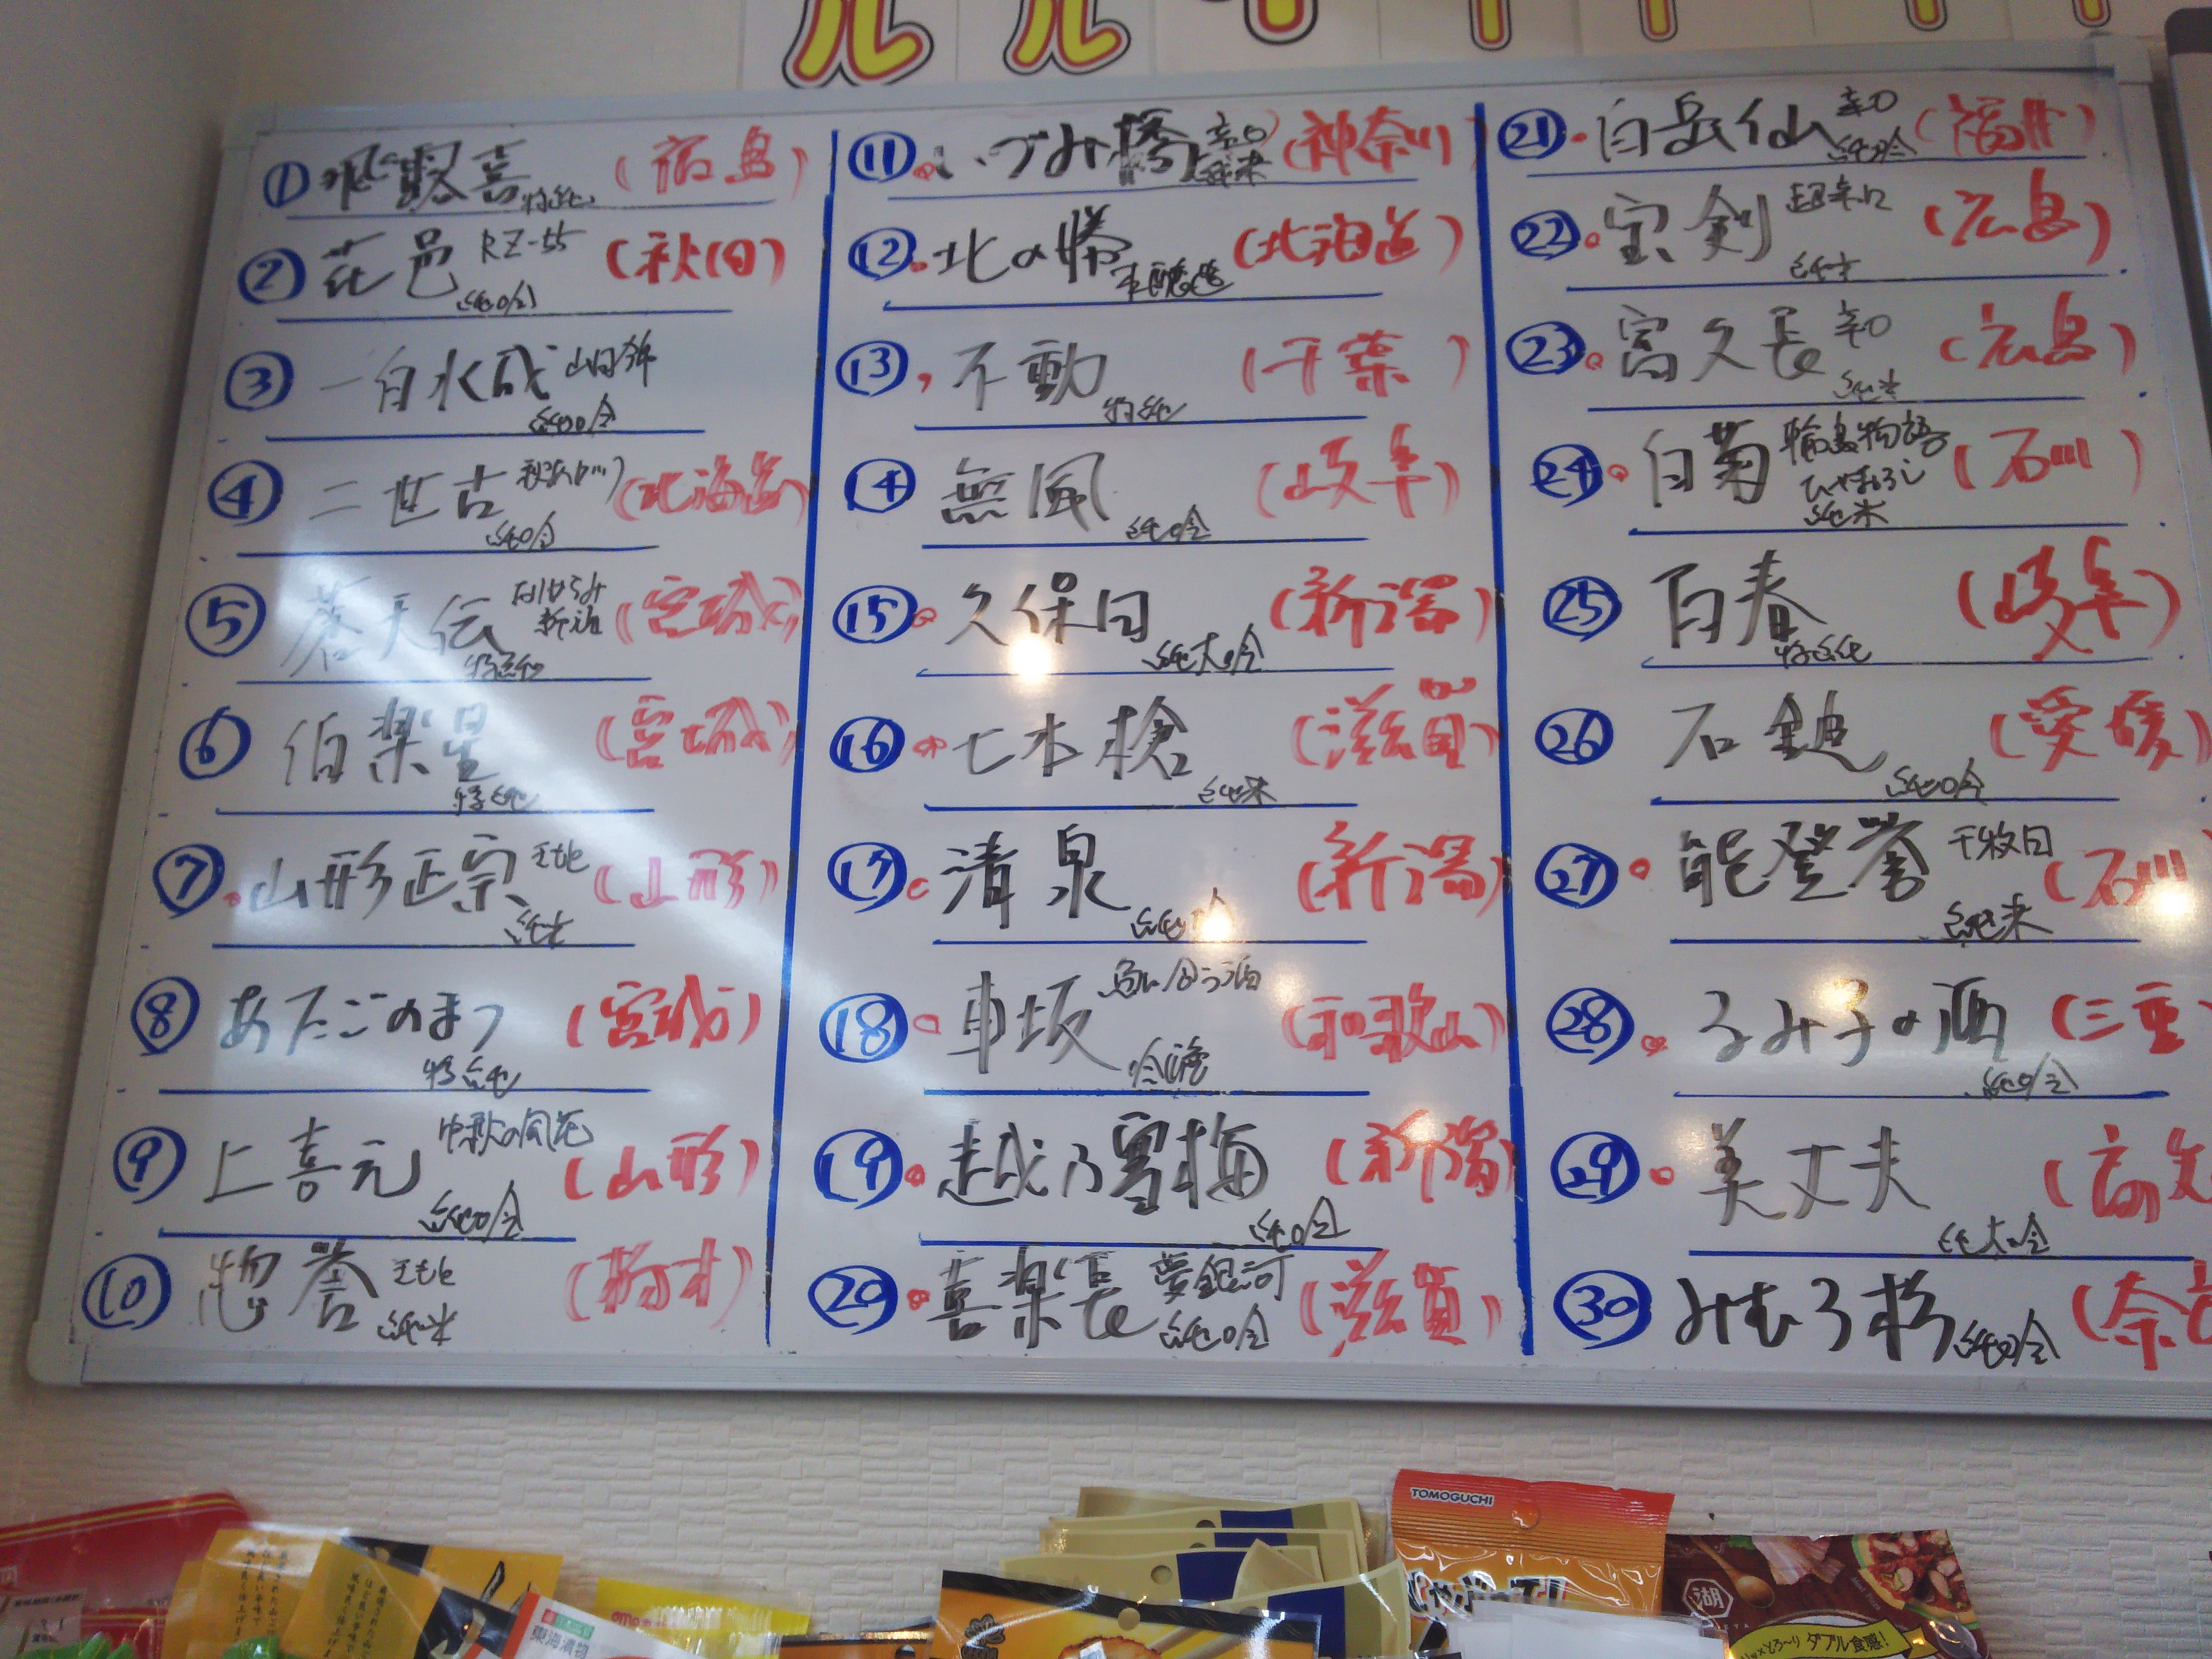 ① 飛露喜 特純 (福島)
② 花邑 RZ-55 純吟 (秋田)
③ 一白水成 山田錦 純吟
④ 二世古 純吟 (北海道)
⑤ 蒼天伝 特純 (宮城)
⑥ 伯楽星 特純 (宮城)
⑦ 山形正宗 純米 (山形)
⑧ あたごのまつ 特純 (宮城)
⑨ 上喜元 中秋の風花 純吟 (山形)
⑩ 惣誉 純米 (栃木)
⑪ いづみ橋 辛口 純米 (神奈川)
⑫ 北の勝 本醸造 (北海道)
⑬ 不動 特純 (千葉)
⑭ 無風 純吟 (岐阜)
⑮ 久保田 純大吟 (新潟)
⑯ 七本槍 純米 (滋賀)
⑰ 清泉 (新潟)
⑱ 車坂 魚に合う酒 吟醸 (和歌山)
⑲ 越乃雪梅 純吟 (新潟)
⑳ 喜楽長 夢銀河 純吟 (滋賀)
㉑ 白岳仙 辛口 純吟 (福井)
㉒ 宝剣 超辛口 純米 (広島)
㉓ 富久長 辛口 純米 (広島)
㉔ 白菊 輪島物語 ひやおろし 純米 (石川)
㉕ 百春 特純 (岐阜)
㉖ 石鎚 純吟 (愛媛)
㉗ 能登誉 千枚田 純米 (石川
㉘ るみ子の酒 純吟 (三重
㉙ 美丈夫 純大吟 (高知
㉚ みむろ杉 純吟 (奈良
TOMOGUCHI
東海漬物
湖
ダブル食感!